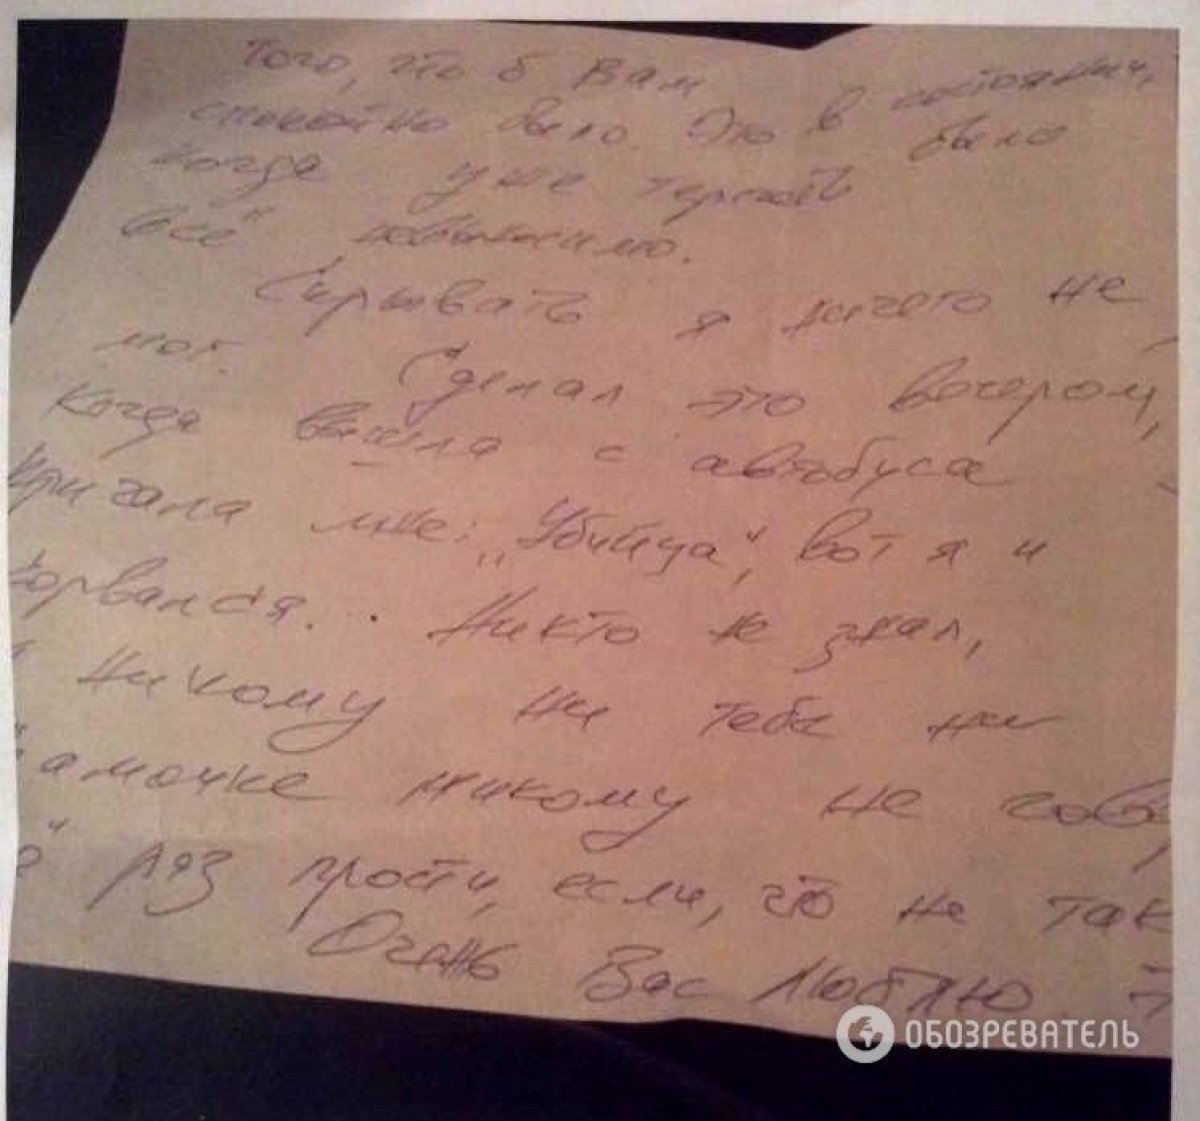 того, что б Вам
спокойно было. Это в состоянии,
когда уже терпеть было
всё невыносимо.
Скрывать я ничего не
мог. Сделал это вечером,
Когда вышла с автобуса
Кричала мне: „Убийца", вот я и
сорвался... Никто не знал,
никому ни тебе ни
амочке никому не гов
раз прости, если, что не так
Очень Вас люблю
ОБОЗРЕВАТЕЛЬ